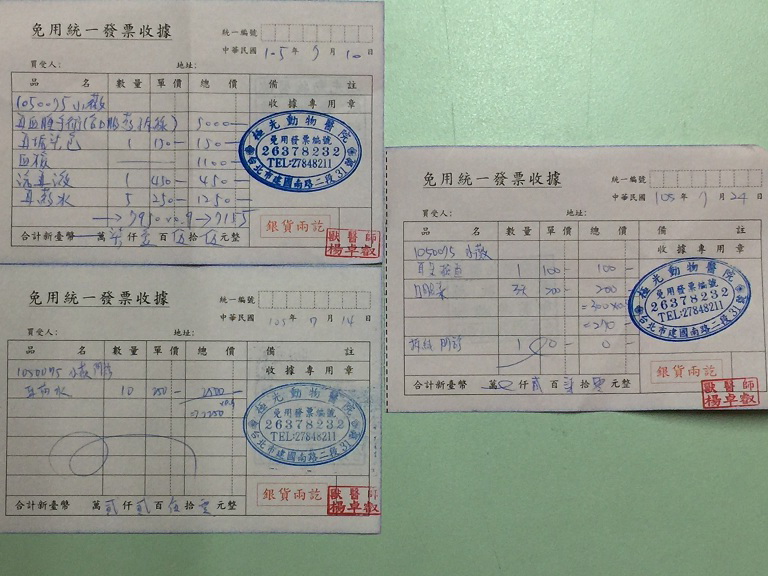 免用統一發票收據
統一編號
中華民國 105 年 7 月 10 日
買受人: 地址:
品 名 數量 單價 總價 備 註
1050075 小薇
收據專用章
耳血腫手術 5000-
1 150- 150-
血檢 1100-
1 450- 450-
5 250- 1250-
→ 7950×0.9→7155
極光動物醫院
免用發票編號
26378232
TEL:27848211
台北市建國南路二段31號
銀貨兩訖
合計新臺幣 萬柒仟壹百伍拾伍元整
獸醫師
楊卓叡
免用統一發票收據
統一編號
中華民國 105 年 7 月 14 日
買受人: 地址:
品 名 數量 單價 總價 備 註
1050075 小薇 門診
收據專用章
10 250- 2500-
×0.9
=2250
極光動物醫院
免用發票編號
26378232
TEL:27848211
台北市建國南路二段31號
銀貨兩訖
合計新臺幣 萬貳仟貳百伍拾零元整
獸醫師
楊卓叡
免用統一發票收據
統一編號
中華民國 105 年 7 月 24 日
買受人: 地址:
品 名 數量 單價 總價 備 註
1050075 小薇
收據專用章
1 100- 100-
200- 200-
=270
拆線 門診 1 0-
極光動物醫院
免用發票編號
26378232
TEL:27848211
台北市建國南路二段31號
銀貨兩訖
合計新臺幣 萬 仟貳百柒拾零元整
獸醫師
楊卓叡